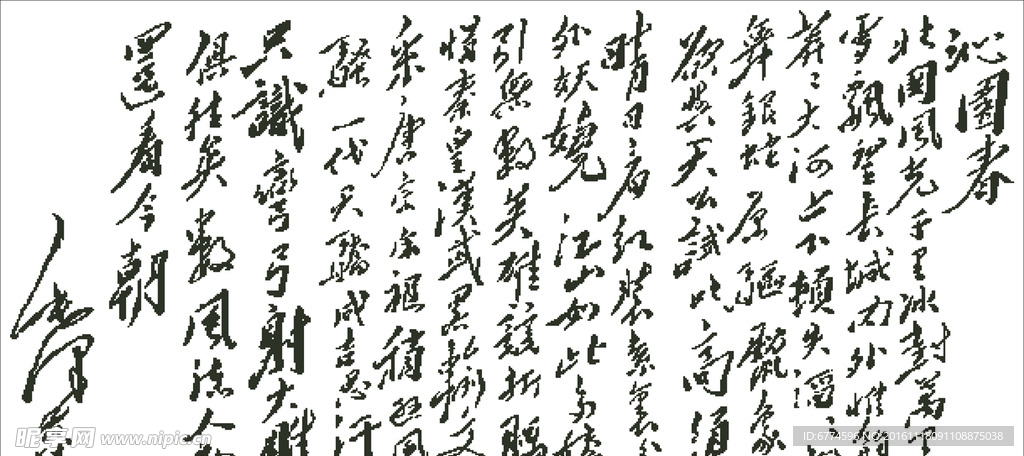 沁園春
北國風光千里冰封萬里
雪飄望長城内外惟餘
莽々大河上下頓失滔々
舞銀蛇原驅臘象
欲與天公試比高須
晴日看红装素裹
外妖嬈江山如此多嬌
引無數英雄競折腰
惜秦皇漢武畧輸文
采唐宗宋祖稍遜風
騷一代天驕成吉思汗
只識彎弓射大雕
俱往矣數風流人物
還看今朝
毛澤東
昵享网 www.nipic.cn
ID:6774596 NO:20161118091108875038